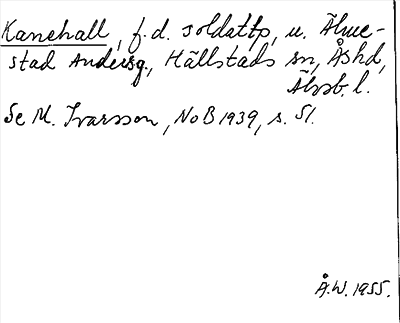 Kanehall, f.d. soldattp, u. Älme-
stad Andersg., Hällstads sn, Åshd,
Älvsb. l.
Se M. Ivarsson, NoB 1939, s. 51.
Å.W. 1955.